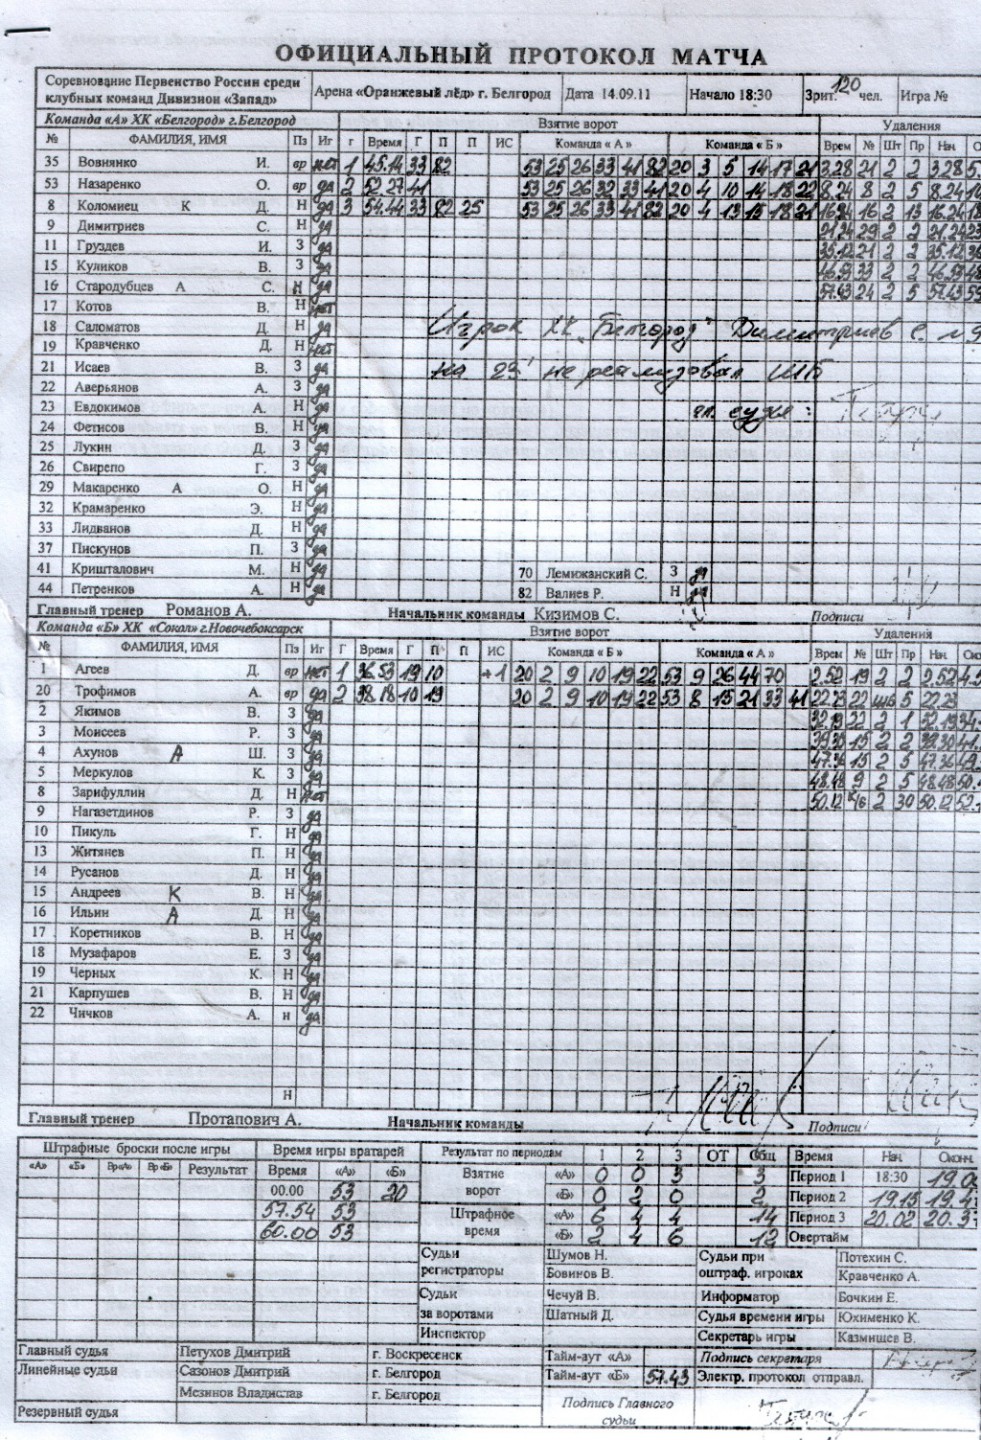 ОФИЦИАЛЬНЫЙ ПРОТОКОЛ МАТЧА
Соревнование Первенство России среди клубных команд Дивизион «Запад» Арена «Оранжевый лёд» г. Белгород Дата 14.09.11 Начало 18:30 Зрит. 120 чел. Игра №
Команда «А» ХК «Белгород» г.Белгород Взятие ворот Удаления
№ ФАМИЛИЯ, ИМЯ Пз Иг г Время Г П П ИС Команда « А » Команда « Б » Врем № Шт Пр Нач
35 Вовнянко И. вр нет 1 45.14 33 82 53 25 26 33 41 82 20 3 5 14 17 21 3.28 21 2 2 3.28
53 Назаренко О. вр да 2 52.27 41 53 25 26 32 33 41 20 4 10 14 18 22 8.24 8 2 5 8.24
8 Коломиец К Д. Н да 3 54.44 33 82 25 53 25 26 33 41 82 20 4 13 15 18 21 16.24 16 2 13 16.24
9 Димитриев С. Н да 21.24 29 2 2 21.24
11 Груздев И. З да 35.12 21 2 2 35.12
15 Куликов В. З да 46.57 33 2 2 46.57
16 Стародубцев А С. Н да 57.43 24 2 5 57.43
17 Котов В. Н нет
18 Саломатов Д. Н да Игрок ХК "Белгород" Димитриев С. №9
19 Кравченко Д. Н нет
21 Исаев В. З да на 23' не реализовал ШБ
22 Аверьянов А. З да
23 Евдокимов А. Н да гл. судья :
24 Фетисов В. Н да
25 Лукин Д. З да
26 Свирепо Г. З да
29 Макаренко А О. Н да
32 Крамаренко Э. Н да
33 Лидванов Д. Н да
37 Пискунов П. З да
41 Кришталович М. Н да 70 Лемижанский С. З да
44 Петренков А. Н да 82 Валиев Р. Н да
Главный тренер Романов А. Начальник команды Кизимов С. Подписи
Команда «Б» ХК «Сокол» г.Новочебоксарск Взятие ворот Удаления
№ ФАМИЛИЯ, ИМЯ Пз Иг Г Время Г П П ИС Команда « Б » Команда « А » Врем № Шт Пр Нач
1 Агеев Д. вр нет 1 36.53 19 10 +1 20 2 9 10 19 22 53 9 26 44 70 2.52 19 2 2 2.52
20 Трофимов А. вр да 2 38.18 10 19 20 2 9 10 19 22 53 8 15 21 33 41 22.23 22 шб 5 22.23
2 Якимов В. З да 32.19 22 2 1 52.19
3 Моисеев Р. З да 39.30 15 2 2 39.30
4 Ахунов А Ш. З да 47.36 15 2 5 47.36
5 Меркулов К. З да 48.48 9 2 5 48.48
8 Зарифуллин Д. Н нет 50.12 к/б 2 30 50.12
9 Нагазетдинов Р. З да
10 Пикуль Г. Н да
13 Житянев П. Н да
14 Русанов Д. Н да
15 Андреев К В. Н да
16 Ильин А Д. Н да
17 Коретников В. Н да
18 Музафаров Е. З да
19 Черных К. Н да
21 Карпушев В. Н да
22 Чичков А. н да
Н
Главный тренер Протапович А. Начальник команды Подписи
Штрафные броски после игры Время игры вратарей Результат по периодам 1 2 3 ОТ Общ Время Нач. Оконч.
«А» «Б» Вр«А» Вр«Б» Результат Время «А» «Б» Взятие ворот «А» 0 0 3 3 Период 1 18:30
00.00 53 20 «Б» 0 2 0 2 Период 2 19.15
57.54 53 Штрафное время «А» 6 4 4 14 Период 3 20.02
60.00 53 «Б» 2 4 6 12 Овертайм
Судьи регистраторы Шумов Н. Судьи при оштраф. игроках Потехин С.
Бовинов В. Кравченко А.
Судьи за воротами Чечуй В. Информатор Бочкин Е.
Шатный Д. Судья времени игры Юхименко К.
Инспектор Секретарь игры Казмищев В.
Главный судья Петухов Дмитрий г. Воскресенск Тайм-аут «А» Подпись секретаря
Линейные судьи Сазонов Дмитрий г. Белгород Тайм-аут «Б» 57.43 Электр. протокол отправл.
Мезинов Владислав г. Белгород Подпись Главного судьи
Резервный судья